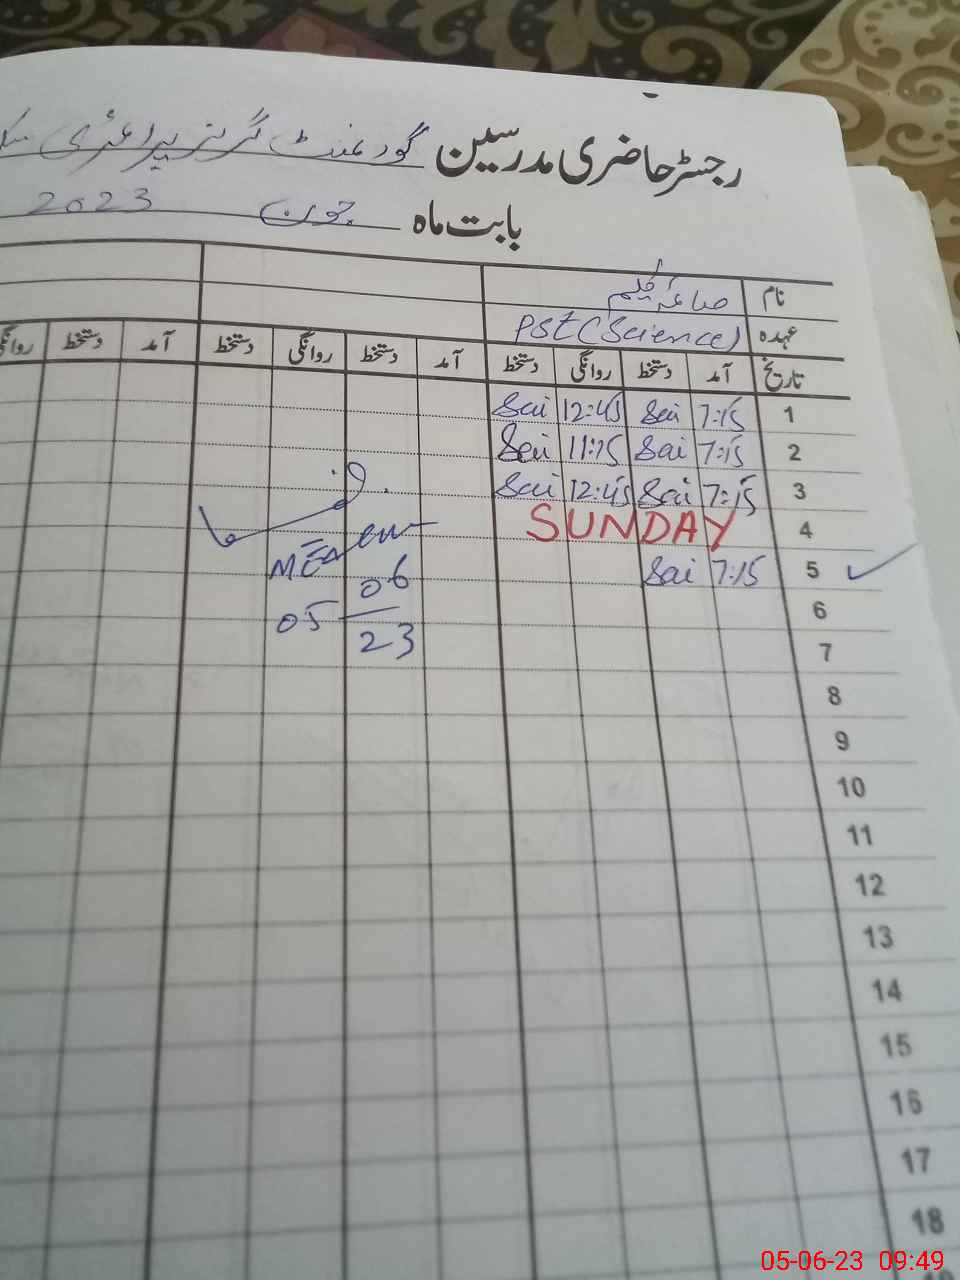 رجسٹر حاضری مدرسین گورنمنٹ گرلز پرائمری
بابت ماہ جون 2023
نام صاعقہ کلیم
عہدہ PST (Science)
تاریخ آمد دستخط روانگی دستخط آمد دستخط روانگی دستخط آمد دستخط روانگی
1 7:15 Sai 12:45 Sai
2 7:15 Sai 11:15 Sai
3 7:15 Sai 12:45 Sai
4 SUNDAY
5 7:15 Sai
MEA
05 06
23
6
7
8
9
10
11
12
13
14
15
16
17
18
05-06-23 09:49